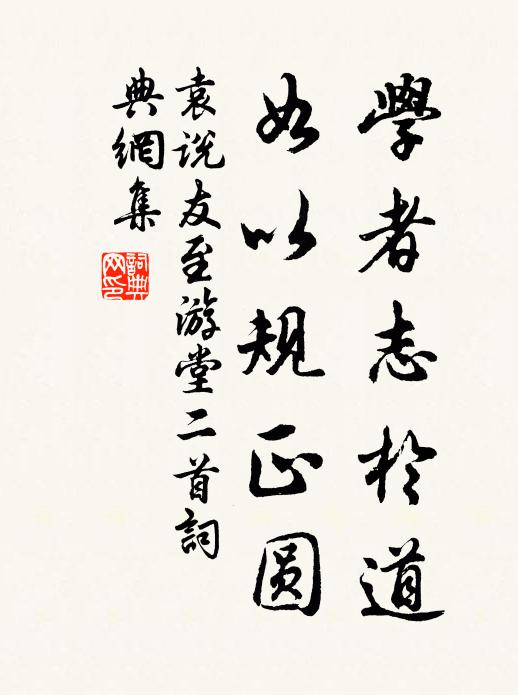 學者志於道
如以規正圆
袁説友至游堂二首詞
典網集
詞典
网印